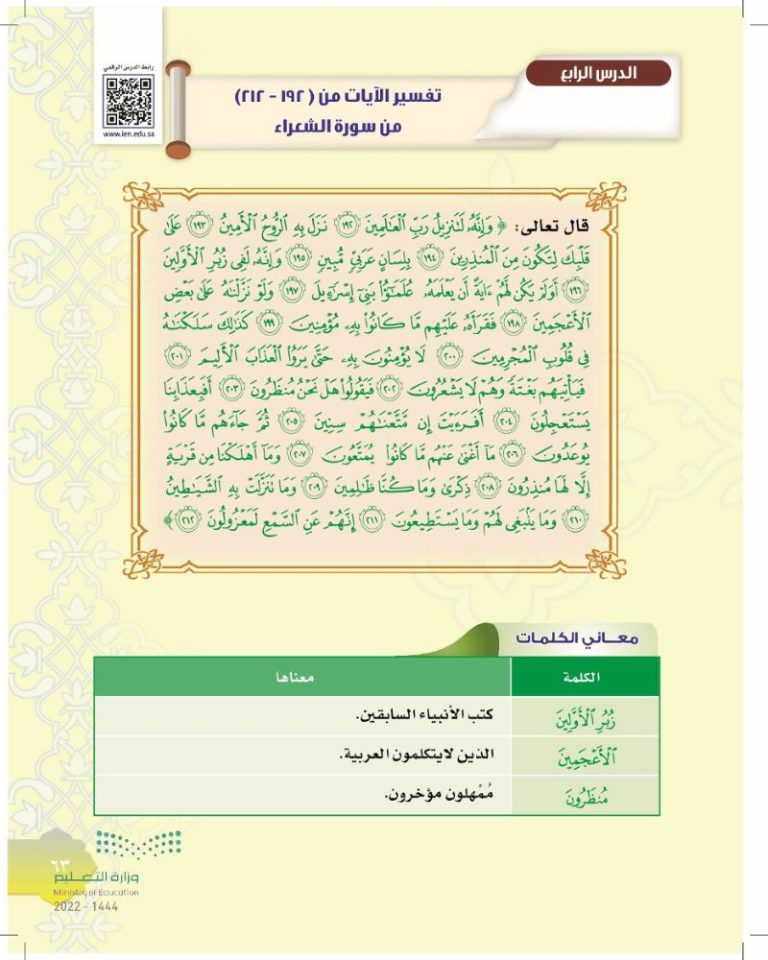 رابط الدرس الرقمي
www.ien.edu.sa
الدرس الرابع
تفسير الآيات من (١٩٢ - ٢١٢)
من سورة الشعراء
قال تعالى: ﴿ وَإِنَّهُۥ لَتَنزِيلُ رَبِّ ٱلْعَٰلَمِينَ ١٩٢ نَزَلَ بِهِ ٱلرُّوحُ ٱلْأَمِينُ ١٩٣ عَلَىٰ
قَلْبِكَ لِتَكُونَ مِنَ ٱلْمُنذِرِينَ ١٩٤ بِلِسَانٍ عَرَبِيٍّ مُّبِينٍ ١٩٥ وَإِنَّهُۥ لَفِى زُبُرِ ٱلْأَوَّلِينَ
١٩٦ أَوَلَمْ يَكُن لَّهُمْ ءَايَةً أَن يَعْلَمَهُۥ عُلَمَٰٓؤُا۟ بَنِىٓ إِسْرَٰٓءِيلَ ١٩٧ وَلَوْ نَزَّلْنَٰهُ عَلَىٰ بَعْضِ
ٱلْأَعْجَمِينَ ١٩٨ فَقَرَأَهُۥ عَلَيْهِم مَّا كَانُوا۟ بِهِۦ مُؤْمِنِينَ ١٩٩ كَذَٰلِكَ سَلَكْنَٰهُ
فِى قُلُوبِ ٱلْمُجْرِمِينَ ٢٠٠ لَا يُؤْمِنُونَ بِهِۦ حَتَّىٰ يَرَوُا۟ ٱلْعَذَابَ ٱلْأَلِيمَ ٢٠١
فَيَأْتِيَهُم بَغْتَةً وَهُمْ لَا يَشْعُرُونَ ٢٠٢ فَيَقُولُوا۟ هَلْ نَحْنُ مُنظَرُونَ ٢٠٣ أَفَبِعَذَابِنَا
يَسْتَعْجِلُونَ ٢٠٤ أَفَرَءَيْتَ إِن مَّتَّعْنَٰهُمْ سِنِينَ ٢٠٥ ثُمَّ جَآءَهُم مَّا كَانُوا۟
يُوعَدُونَ ٢٠٦ مَآ أَغْنَىٰ عَنْهُم مَّا كَانُوا۟ يُمَتَّعُونَ ٢٠٧ وَمَآ أَهْلَكْنَا مِن قَرْيَةٍ
إِلَّا لَهَا مُنذِرُونَ ٢٠٨ ذِكْرَىٰ وَمَا كُنَّا ظَٰلِمِينَ ٢٠٩ وَمَا تَنَزَّلَتْ بِهِ ٱلشَّيَٰطِينُ
٢١٠ وَمَا يَنۢبَغِى لَهُمْ وَمَا يَسْتَطِيعُونَ ٢١١ إِنَّهُمْ عَنِ ٱلسَّمْعِ لَمَعْزُولُونَ ٢١٢ ﴾
معـــاني الكلمـات
الكلمة معناها
زُبُرِ ٱلْأَوَّلِينَ كتب الأنبياء السابقين.
ٱلْأَعْجَمِينَ الذين لايتكلمون العربية.
مُنظَرُونَ مُمْهلون مؤخرون.
٦٣
وزارة التعـــليم
Ministry of Education
2022 - 1444